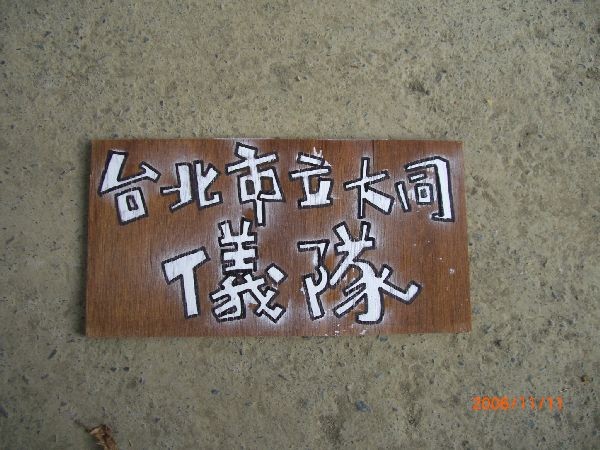 台北市立大同
儀隊
2006/11/11